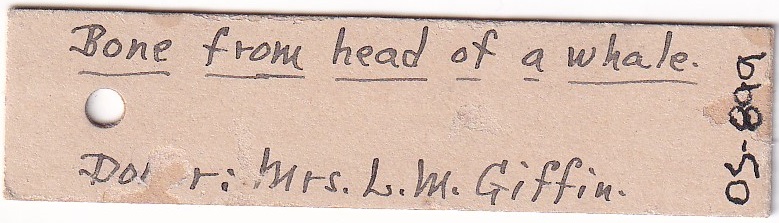 Bone from head of a whale.
Donor: Mrs. L.M. Giffin.